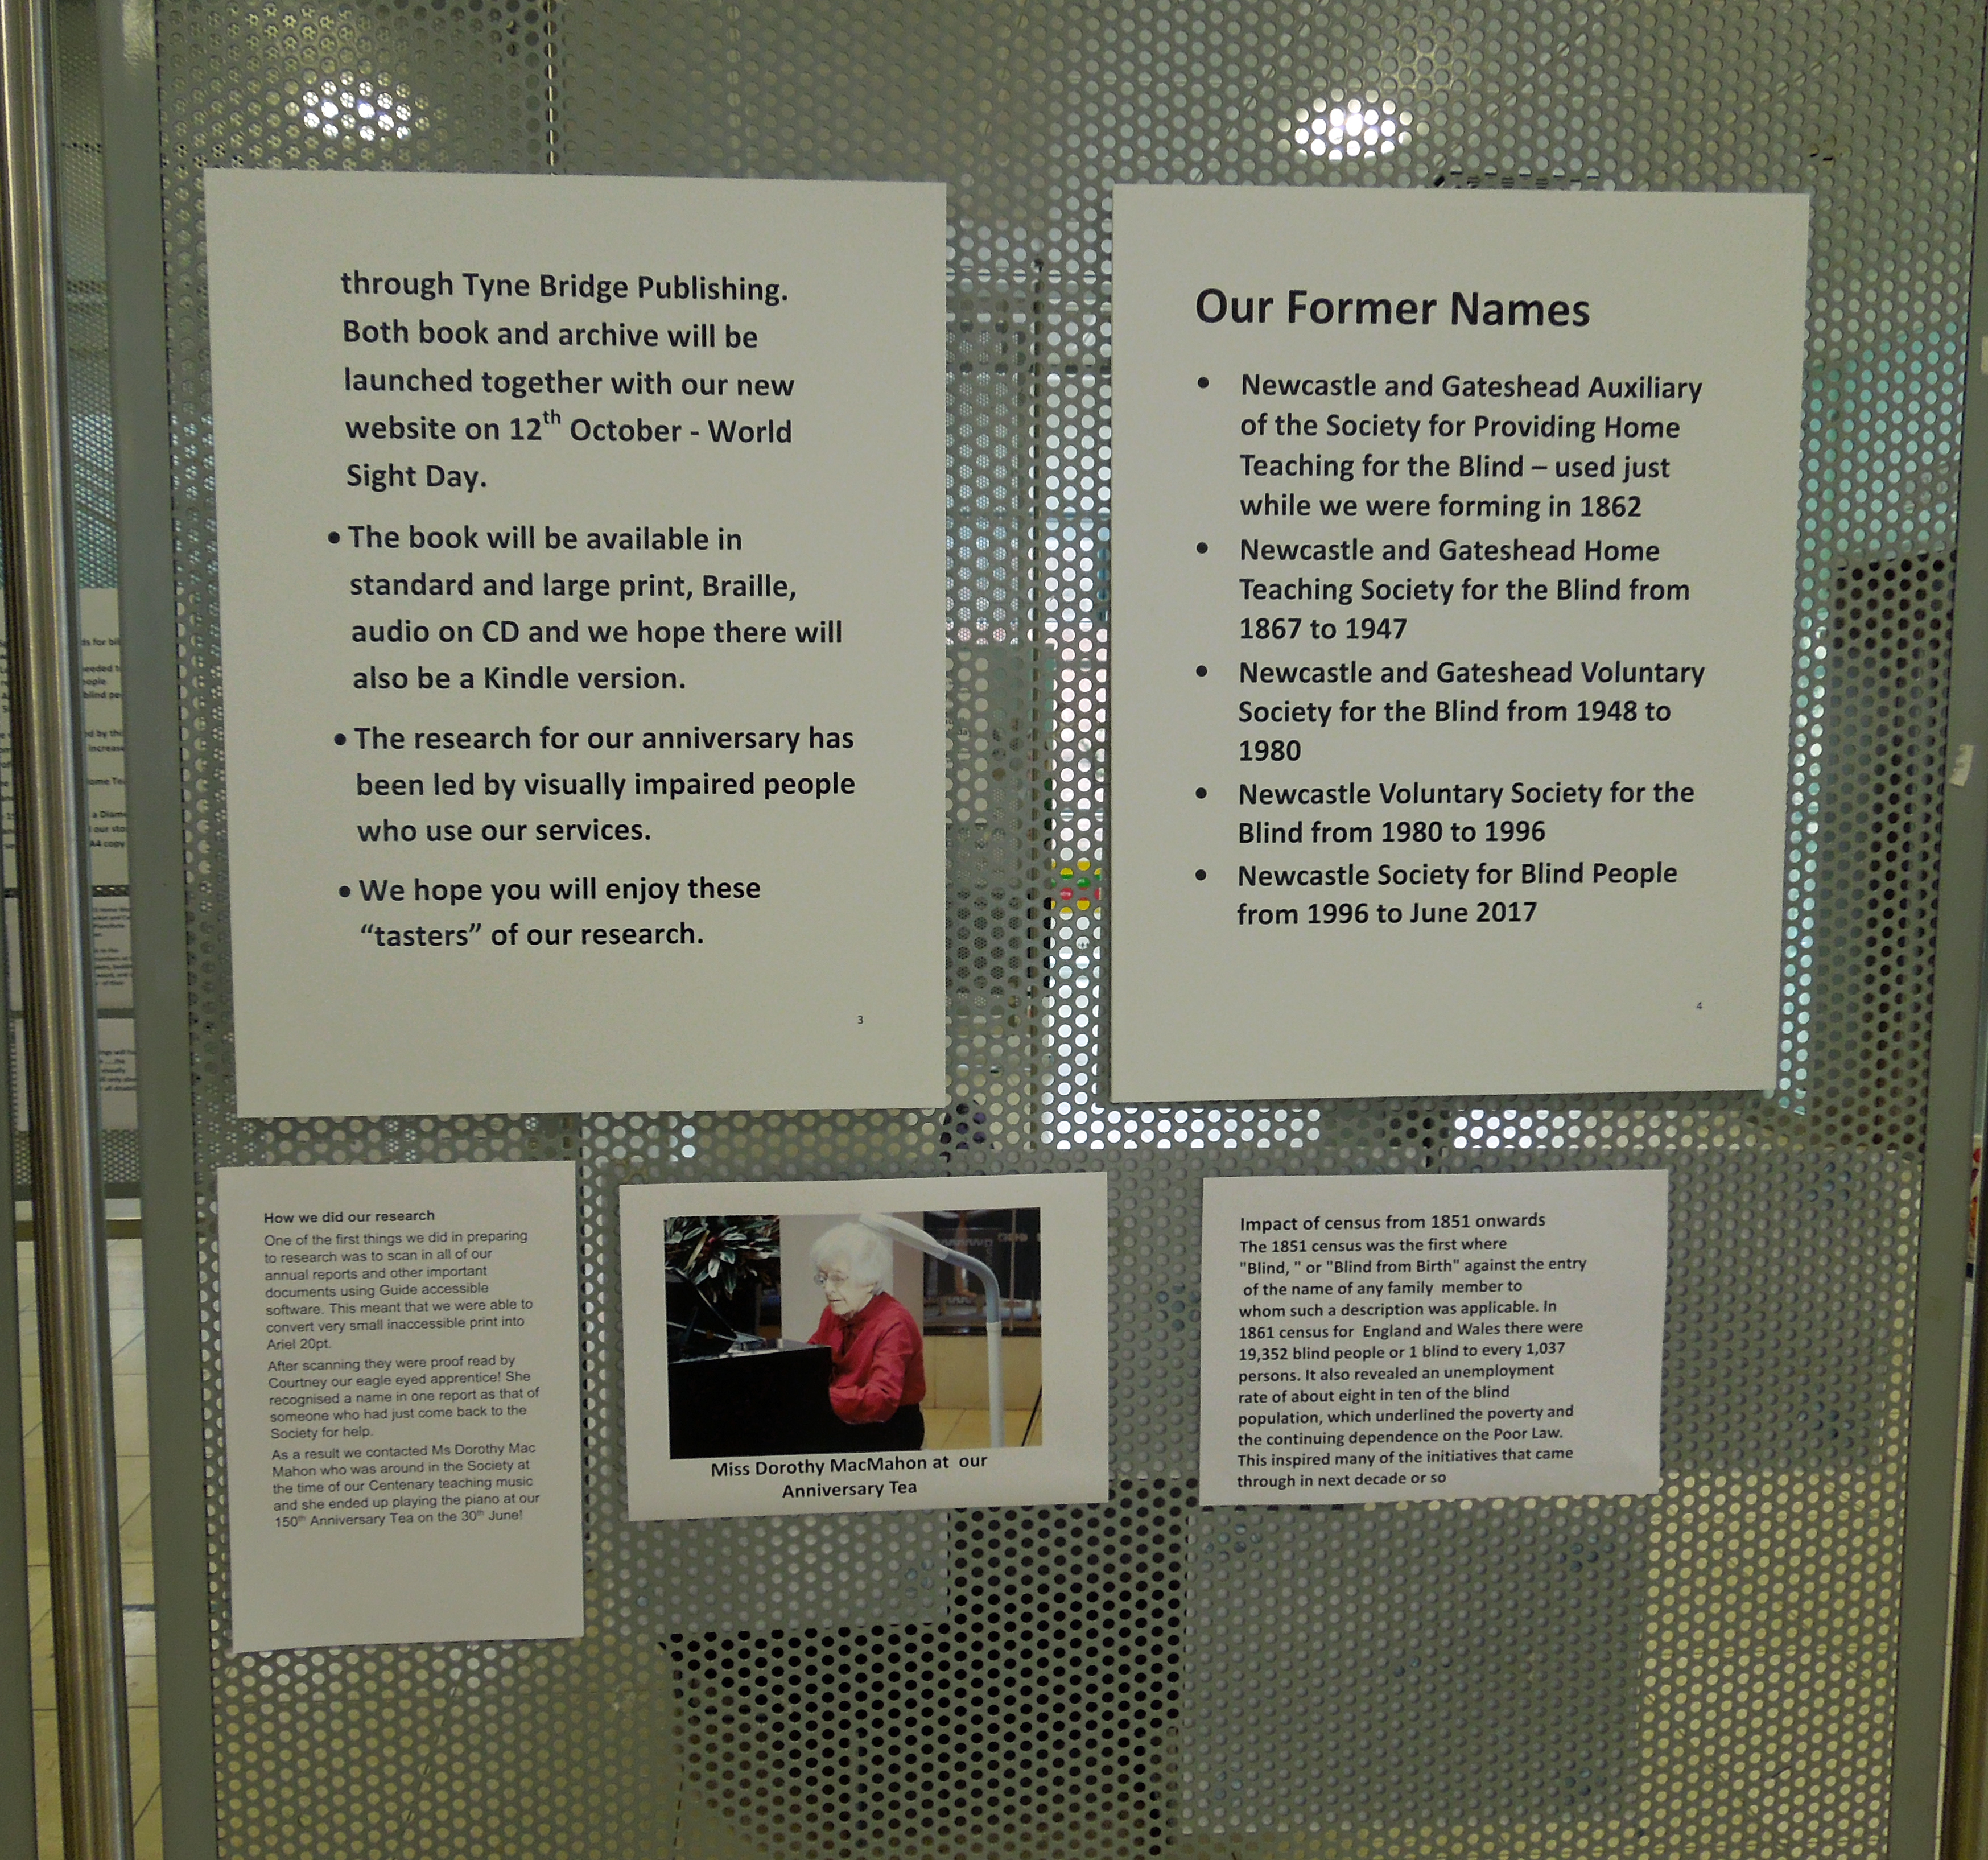 through Tyne Bridge Publishing.
Both book and archive will be
launched together with our new
website on 12th October - World
Sight Day.
• The book will be available in
standard and large print, Braille,
audio on CD and we hope there will
also be a Kindle version.
• The research for our anniversary has
been led by visually impaired people
who use our services.
• We hope you will enjoy these
“tasters” of our research.
3
Our Former Names
• Newcastle and Gateshead Auxiliary
of the Society for Providing Home
Teaching for the Blind – used just
while we were forming in 1862
• Newcastle and Gateshead Home
Teaching Society for the Blind from
1867 to 1947
• Newcastle and Gateshead Voluntary
Society for the Blind from 1948 to
1980
• Newcastle Voluntary Society for the
Blind from 1980 to 1996
• Newcastle Society for Blind People
from 1996 to June 2017
4
How we did our research
One of the first things we did in preparing
to research was to scan in all of our
annual reports and other important
documents using Guide accessible
software. This meant that we were able to
convert very small inaccessible print into
Ariel 20pt.
After scanning they were proof read by
Courtney our eagle eyed apprentice! She
recognised a name in one report as that of
someone who had just come back to the
Society for help.
As a result we contacted Ms Dorothy Mac
Mahon who was around in the Society at
the time of our Centenary teaching music
and she ended up playing the piano at our
150th Anniversary Tea on the 30th June!
Miss Dorothy MacMahon at our
Anniversary Tea
Impact of census from 1851 onwards
The 1851 census was the first where
"Blind, " or "Blind from Birth" against the entry
of the name of any family member to
whom such a description was applicable. In
1861 census for England and Wales there were
19,352 blind people or 1 blind to every 1,037
persons. It also revealed an unemployment
rate of about eight in ten of the blind
population, which underlined the poverty and
the continuing dependence on the Poor Law.
This inspired many of the initiatives that came
through in next decade or so